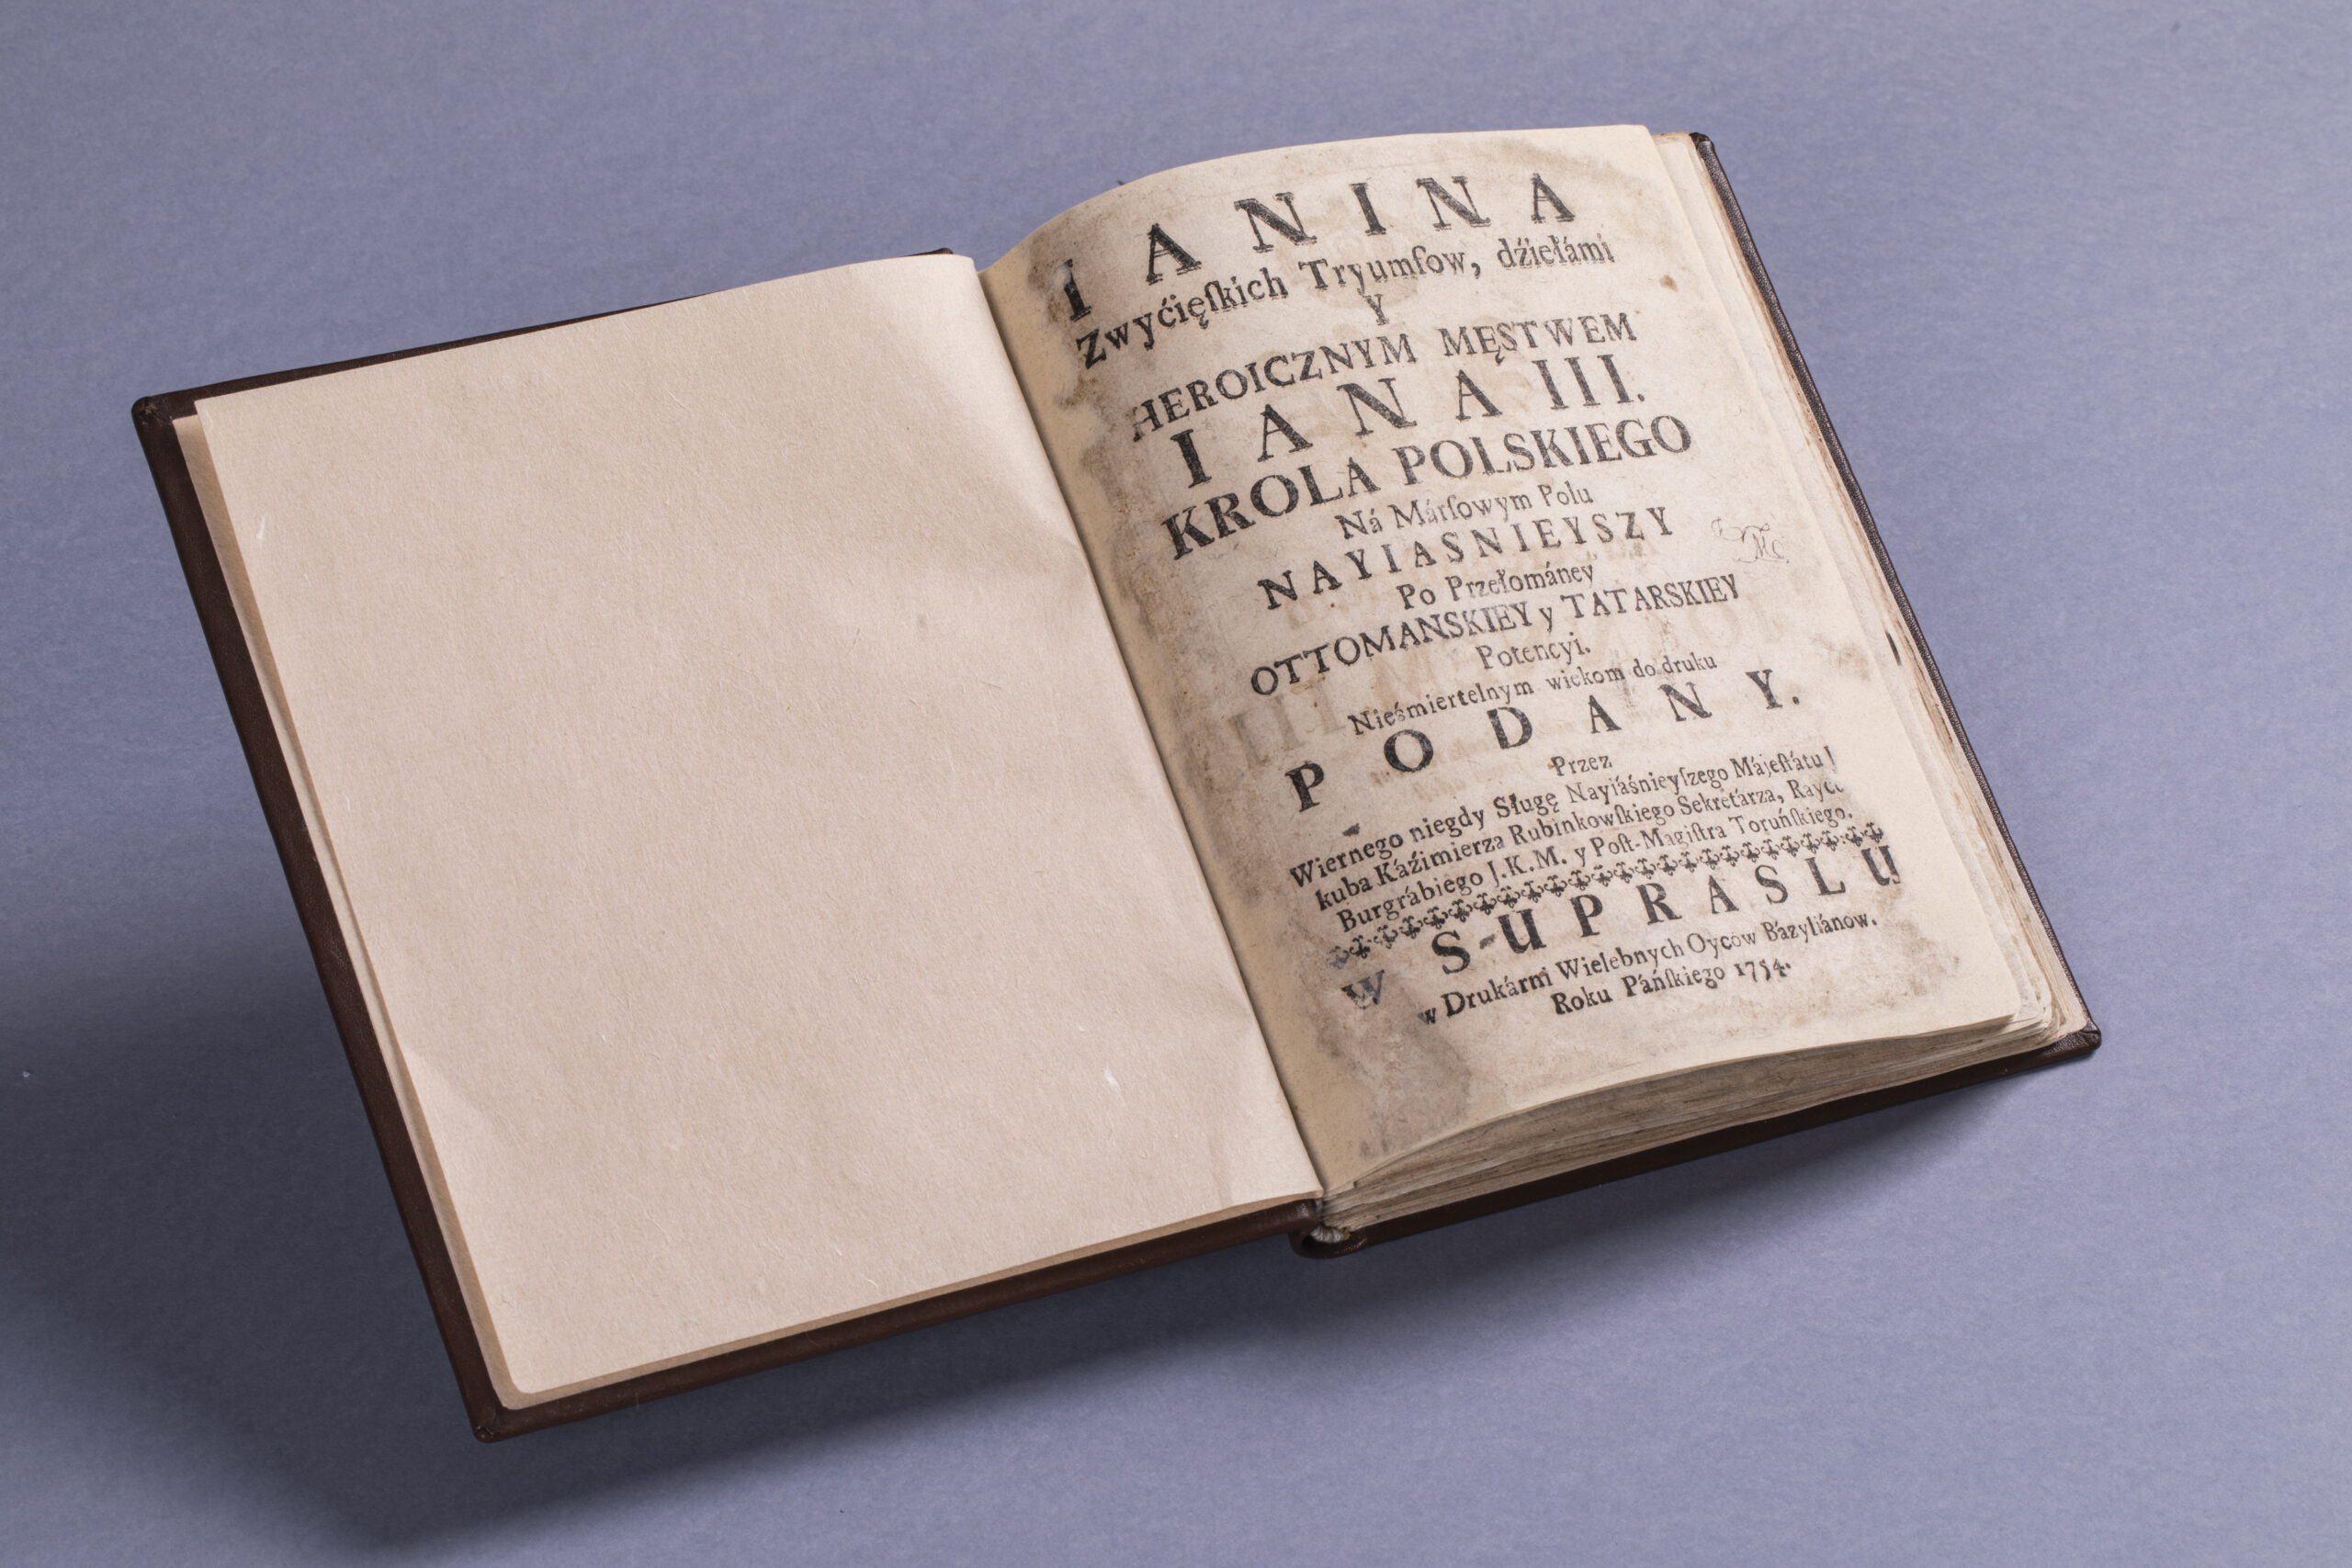 IANINA
Zwyćięſkich Tryumfow, dźiełámi
Y
HEROICZNYM MĘSTWEM
IANA III.
KROLA POLSKIEGO
Ná Márſowym Polu
NAYIASNIEYSZY
Po Przełománey
OTTOMANSKIEY y TATARSKIEY
Potencyi.
Nieśmiertelnym wiekom do druku
PODANY.
Przez
Wiernego niegdy Sługę Nayiáśnieyſzego Májeſtátu J
kuba Káźimierza Rubinkowſkiego Sekretárza, Rayce
Burgrábiego J.K.M. y Poſt-Magiſtra Toruńſkiego.
W SUPRASLU
w Drukárni Wielebnych Oycow Bázyliánow.
Roku Páńſkiego 1754.